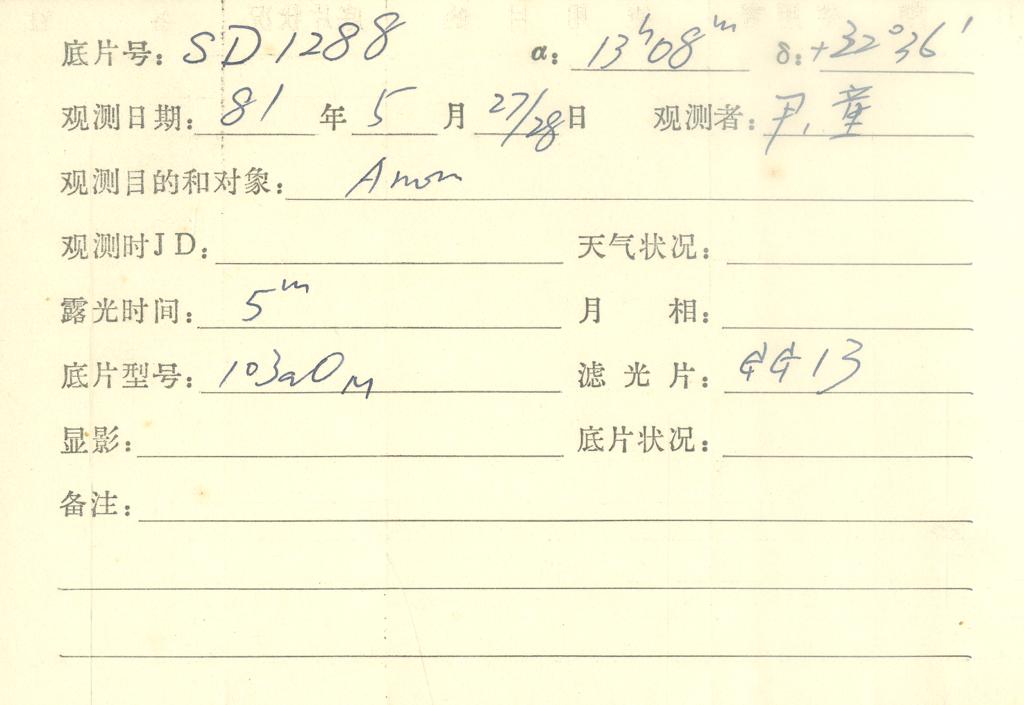 底片号: SD1288 α: 13h08m δ: +32°36′
观测日期: 81 年 5 月 27/28 日 观测者: 尹, 童
观测目的和对象: Anon
观测时JD: 天气状况:
露光时间: 5m 月 相:
底片型号: 103aO 滤光片: GG13
显影: 底片状况:
备注: